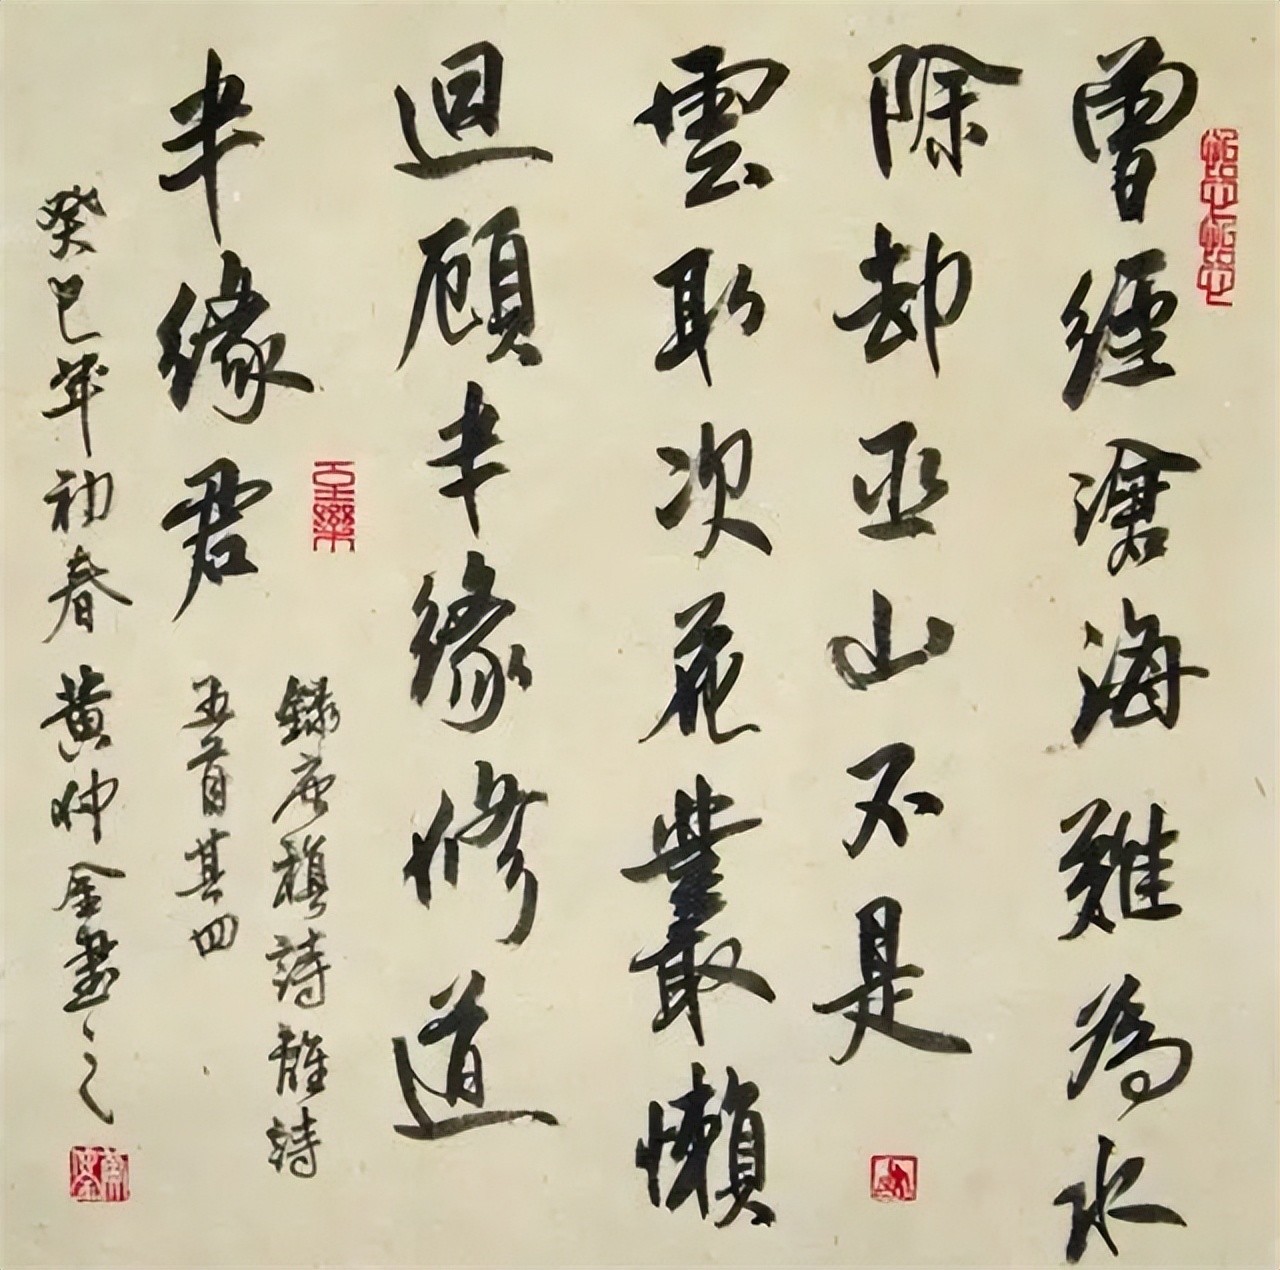 曾經滄海難為水
除却巫山不是
雲取次花叢懶
迴顧半緣修道
半緣君
錄唐稹詩離詩
五首其四
癸巳年初春黃仲金書之
至樂